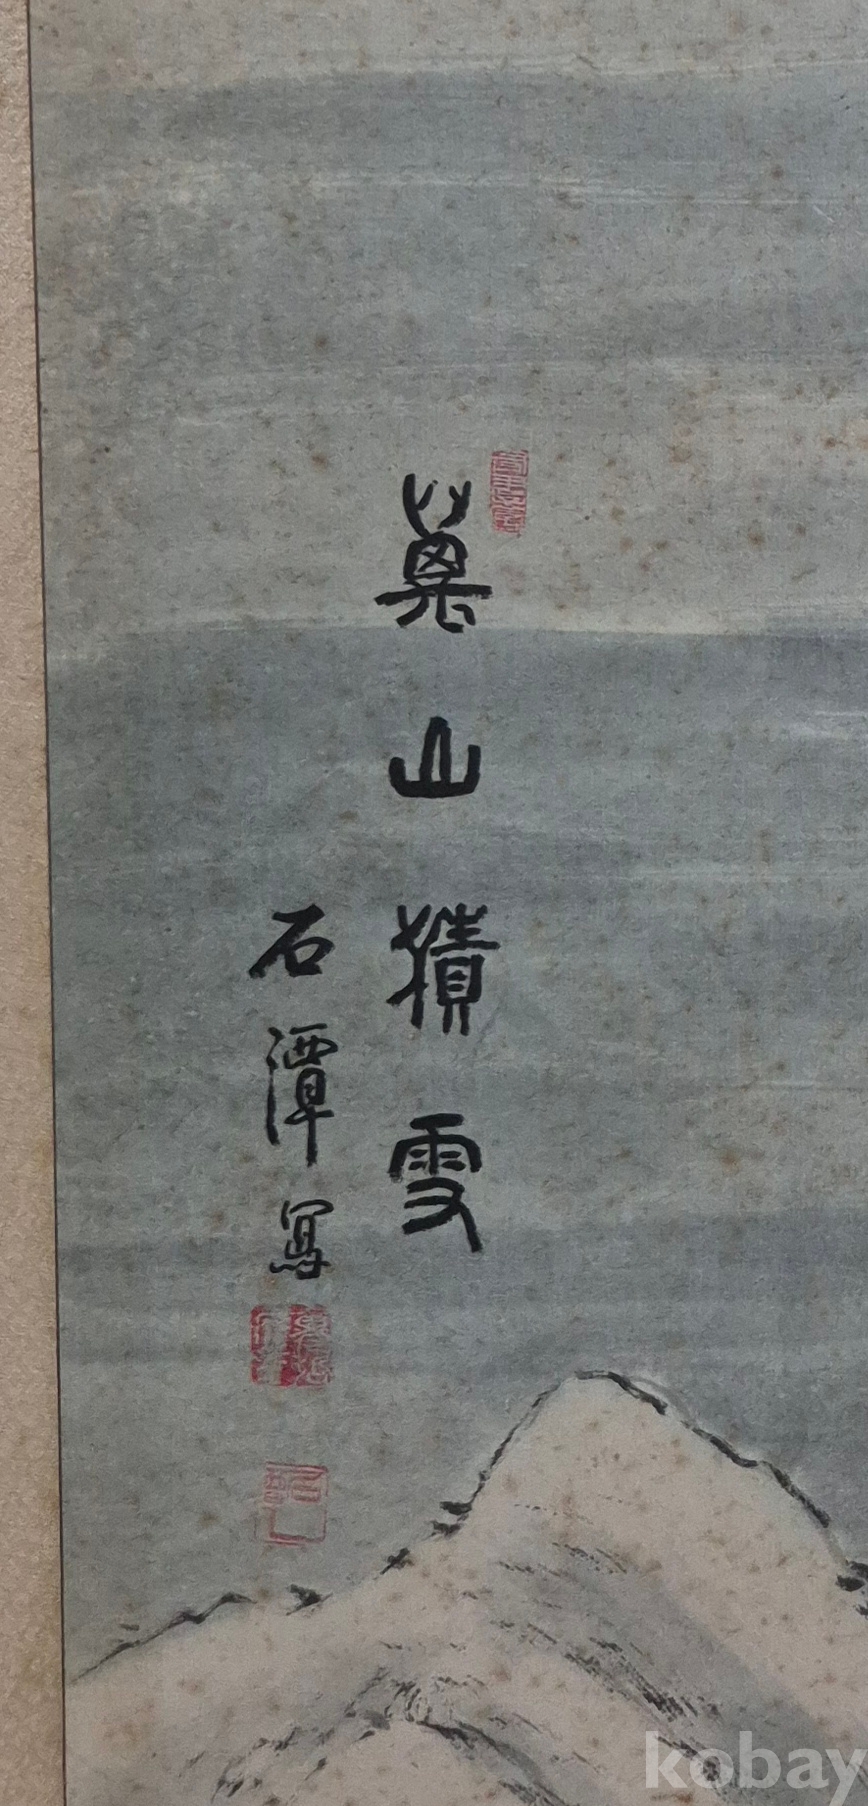 萬山積雪
石潭寫
kobay